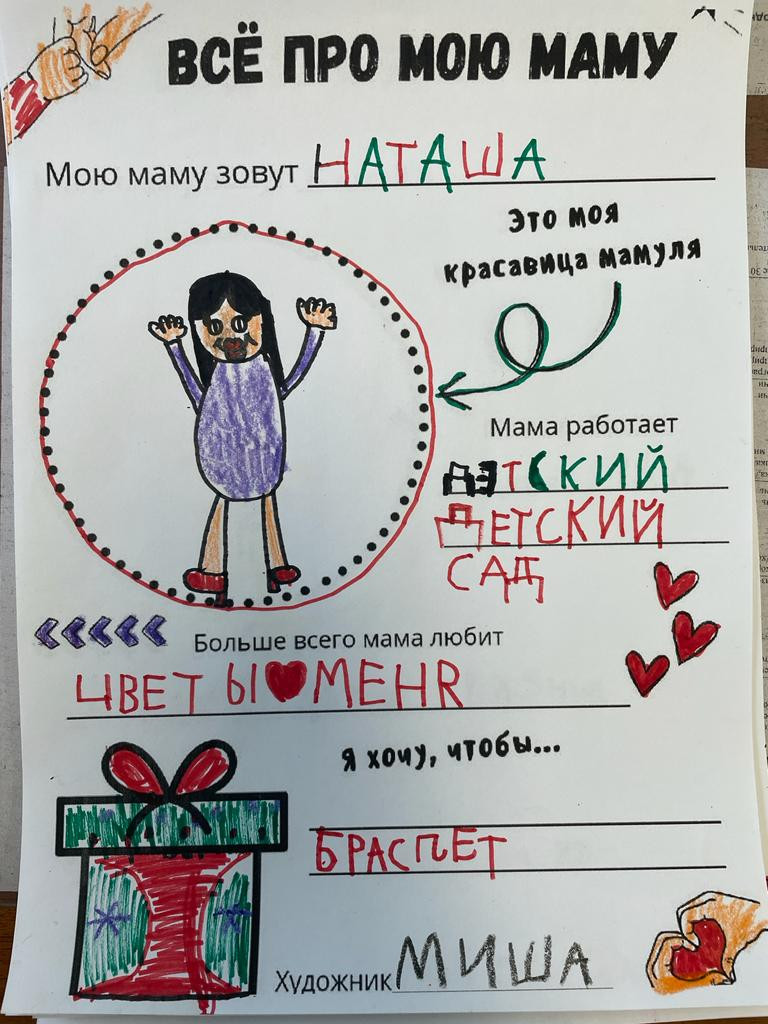 ВСЁ ПРО МОЮ МАМУ
Мою маму зовут НАТАША
Это моя
красавица мамуля
Мама работает
ДЕТСКИЙ
ДЕТСКИЙ
САД
Больше всего мама любит
ЦВЕТЫ МЕНЯ
я хочу, чтобы...
БРАСЛЕТ
Художник МИША